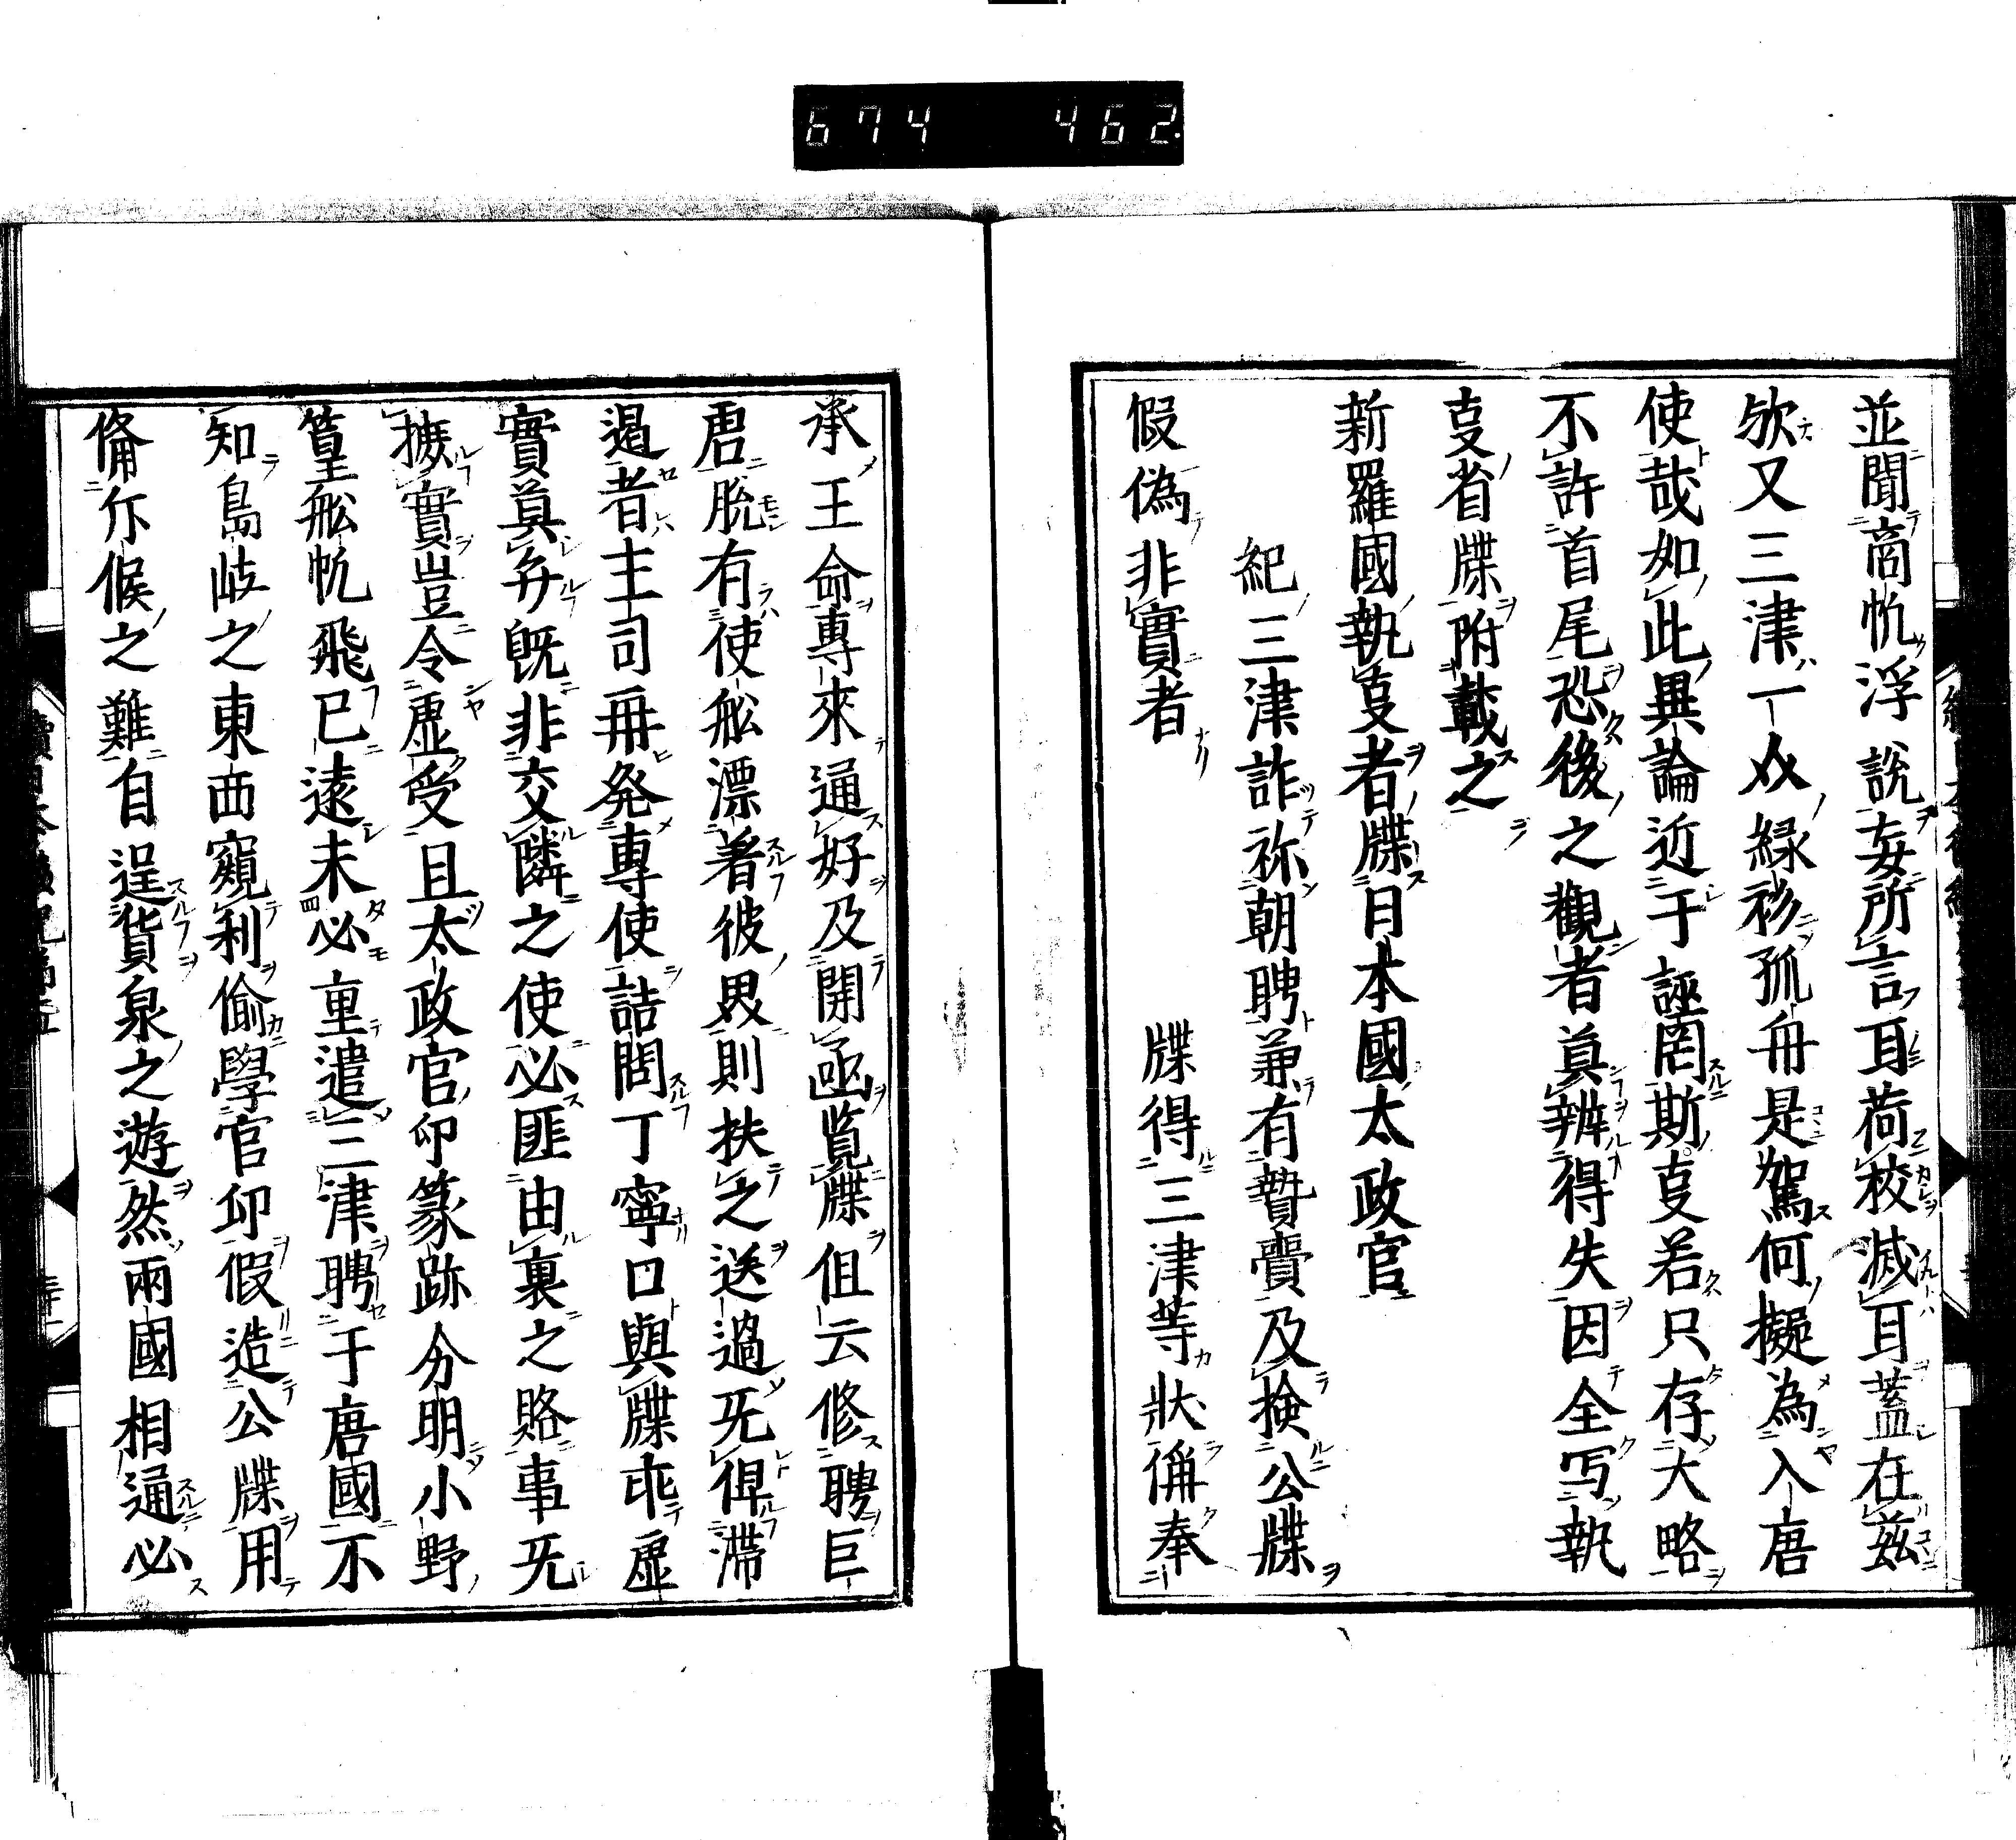 674 462.
並聞商帆浮說妄所言耳荷校滅耳蓋在茲
欤又三津一介緑衫孤舟是駕何擬為入唐
使哉如此異論近于誣罔斯㕝若只存大略
不許首尾恐後之觀者莫辨得失因全写執
㕝省牒附載之
新羅國執㕝者牒日本國太政官
紀三津詐祢朝聘兼有贄賷及撿公牒
假偽非實者
牒得三津等狀偁奉
承王命專來通好及開函覧牒伹云修聘巨
唐脫有使舩漂着彼堺則扶之送過旡俾滯
遏者主司冊発專使詰問丁寧口與牒乖虚
實莫弁旣非交隣之使必匪由裏之賂事旡
摭實豈令虚受且太政官印篆跡分明小野
篁舩帆飛已遠未必重遣三津聘于唐國不
知島岐之東西窺利偷學官印假造公牒用
俻斥候之難自逞貨泉之遊然兩國相通必